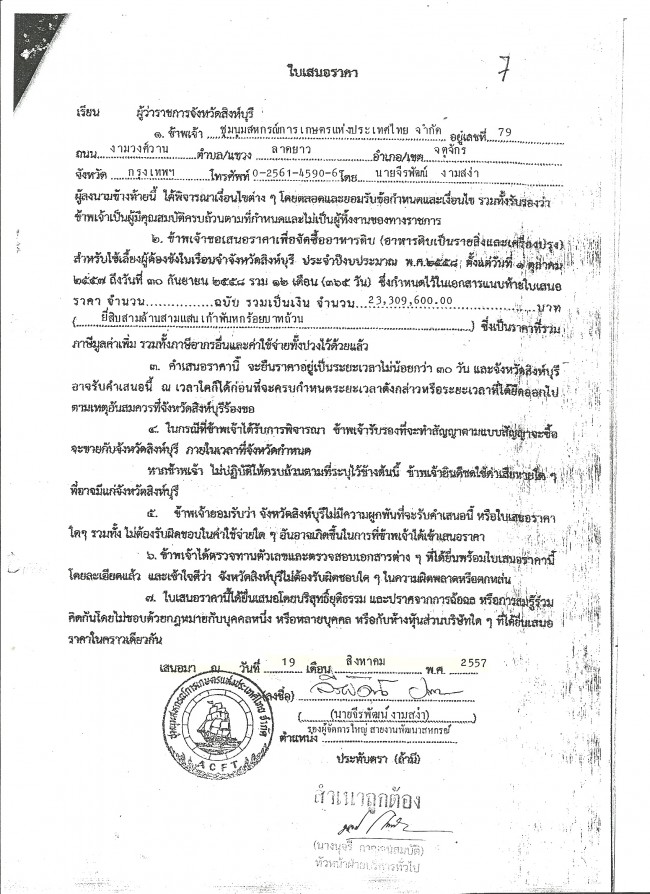 ใบเสนอราคา
7
เรียน ผู้ว่าราชการจังหวัดสิงห์บุรี
๑. ข้าพเจ้า ชุมนุมสหกรณ์การเกษตรแห่งประเทศไทย จำกัด อยู่เลขที่ 79
ถนน งามวงศ์วาน ตำบล/แขวง ลาดยาว อำเภอ/เขต จตุจักร
จังหวัด กรุงเทพฯ โทรศัพท์ 0-2561-4590-6 โดย นายจีรพัฒน์ งามสง่า
ผู้ลงนามข้างท้ายนี้ ได้พิจารณาเงื่อนไขต่าง ๆ โดยตลอดและยอมรับข้อกำหนดและเงื่อนไข รวมทั้งรับรองว่า
ข้าพเจ้าเป็นผู้มีคุณสมบัติครบถ้วนตามที่กำหนดและไม่เป็นผู้ทิ้งงานของทางราชการ
๒. ข้าพเจ้าขอเสนอราคาเพื่อจัดซื้ออาหารดิบ (อาหารดิบเป็นรายสิ่งและเครื่องปรุง)
สำหรับใช้เลี้ยงผู้ต้องขังในเรือนจำจังหวัดสิงห์บุรี ประจำปีงบประมาณ พ.ศ.๒๕๕๘ ตั้งแต่วันที่ ๑ ตุลาคม
๒๕๕๗ ถึงวันที่ ๓๐ กันยายน ๒๕๕๘ รวม ๑๒ เดือน (๓๖๕ วัน) ซึ่งกำหนดไว้ในเอกสารแนบท้ายใบเสนอ
ราคา จำนวน...............ฉบับ รวมเป็นเงิน จำนวน 23,309,600.00 บาท
( ยี่สิบสามล้านสามแสนเก้าพันหกร้อยบาทถ้วน ) ซึ่งเป็นราคาที่รวม
ภาษีมูลค่าเพิ่ม รวมทั้งภาษีอากรอื่นและค่าใช้จ่ายทั้งปวงไว้ด้วยแล้ว
๓. คำเสนอราคานี้ จะยืนราคาอยู่เป็นระยะเวลาไม่น้อยกว่า ๓๐ วัน และจังหวัดสิงห์บุรี
อาจรับคำเสนอนี้ ณ เวลาใดก็ได้ก่อนที่จะครบกำหนดระยะเวลาดังกล่าวหรือระยะเวลาที่ได้ยืดออกไป
ตามเหตุอันสมควรที่จังหวัดสิงห์บุรีร้องขอ
๔. ในกรณีที่ข้าพเจ้าได้รับการพิจารณา ข้าพเจ้ารับรองที่จะทำสัญญาตามแบบสัญญาจะซื้อ
จะขายกับจังหวัดสิงห์บุรี ภายในเวลาที่จังหวัดกำหนด
หากข้าพเจ้า ไม่ปฏิบัติให้ครบถ้วนตามที่ระบุไว้ข้างต้นนี้ ข้าพเจ้ายินดีชดใช้ค่าเสียหายใด ๆ
ที่อาจมีแก่จังหวัดสิงห์บุรี
๕. ข้าพเจ้ายอมรับว่า จังหวัดสิงห์บุรีไม่มีความผูกพันที่จะรับคำเสนอนี้ หรือใบเสนอราคา
ใดๆ รวมทั้ง ไม่ต้องรับผิดชอบในค่าใช้จ่ายใด ๆ อันอาจเกิดขึ้นในการที่ข้าพเจ้าได้เข้าเสนอราคา
๖. ข้าพเจ้าได้ตรวจทานตัวเลขและตรวจสอบเอกสารต่าง ๆ ที่ได้ยื่นพร้อมใบเสนอราคานี้
โดยละเอียดแล้ว และเข้าใจดีว่า จังหวัดสิงห์บุรีไม่ต้องรับผิดชอบใด ๆ ในความผิดพลาดหรือตกหล่น
๗. ใบเสนอราคานี้ได้ยื่นเสนอโดยบริสุทธิ์ยุติธรรม และปราศจากการฉ้อฉล หรือการสมรู้ร่วม
คิดกันโดยไม่ชอบด้วยกฎหมายกับบุคคลหนึ่ง หรือหลายบุคคล หรือกับห้างหุ้นส่วนบริษัทใด ๆ ที่ได้ยื่นเสนอ
ราคาในคราวเดียวกัน
เสนอมา ณ วันที่ 19 เดือน สิงหาคม พ.ศ. 2557
(ลงชื่อ)
(นายจีรพัฒน์ งามสง่า)
ตำแหน่ง รองผู้จัดการใหญ่ สายงานพัฒนาสหกรณ์
ประทับตรา (ถ้ามี)
ชุมนุมสหกรณ์การเกษตรแห่งประเทศไทย จำกัด
ACFT
สำเนาถูกต้อง
หัวหน้าฝ่ายบริหารทั่วไป